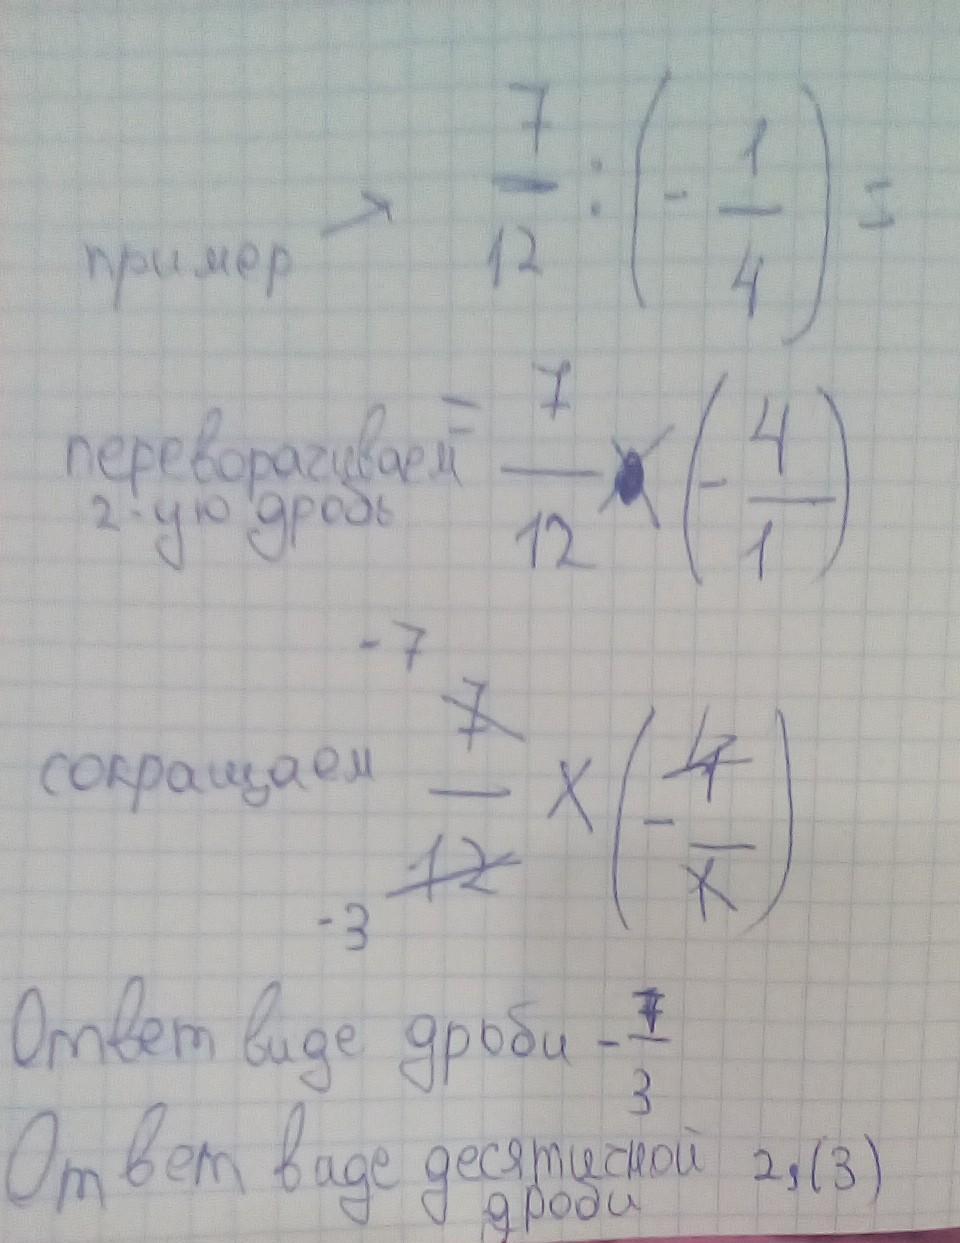 пример → 7/12 : (- 1/4) =
переворачиваем = 7/12 × (- 4/1)
2-ую дробь
-7
сокращаем 7/12 × (- 4/1)
-3
Ответ виде дроби - 7/3
Ответ виде десятичной 2,(3)
дроби